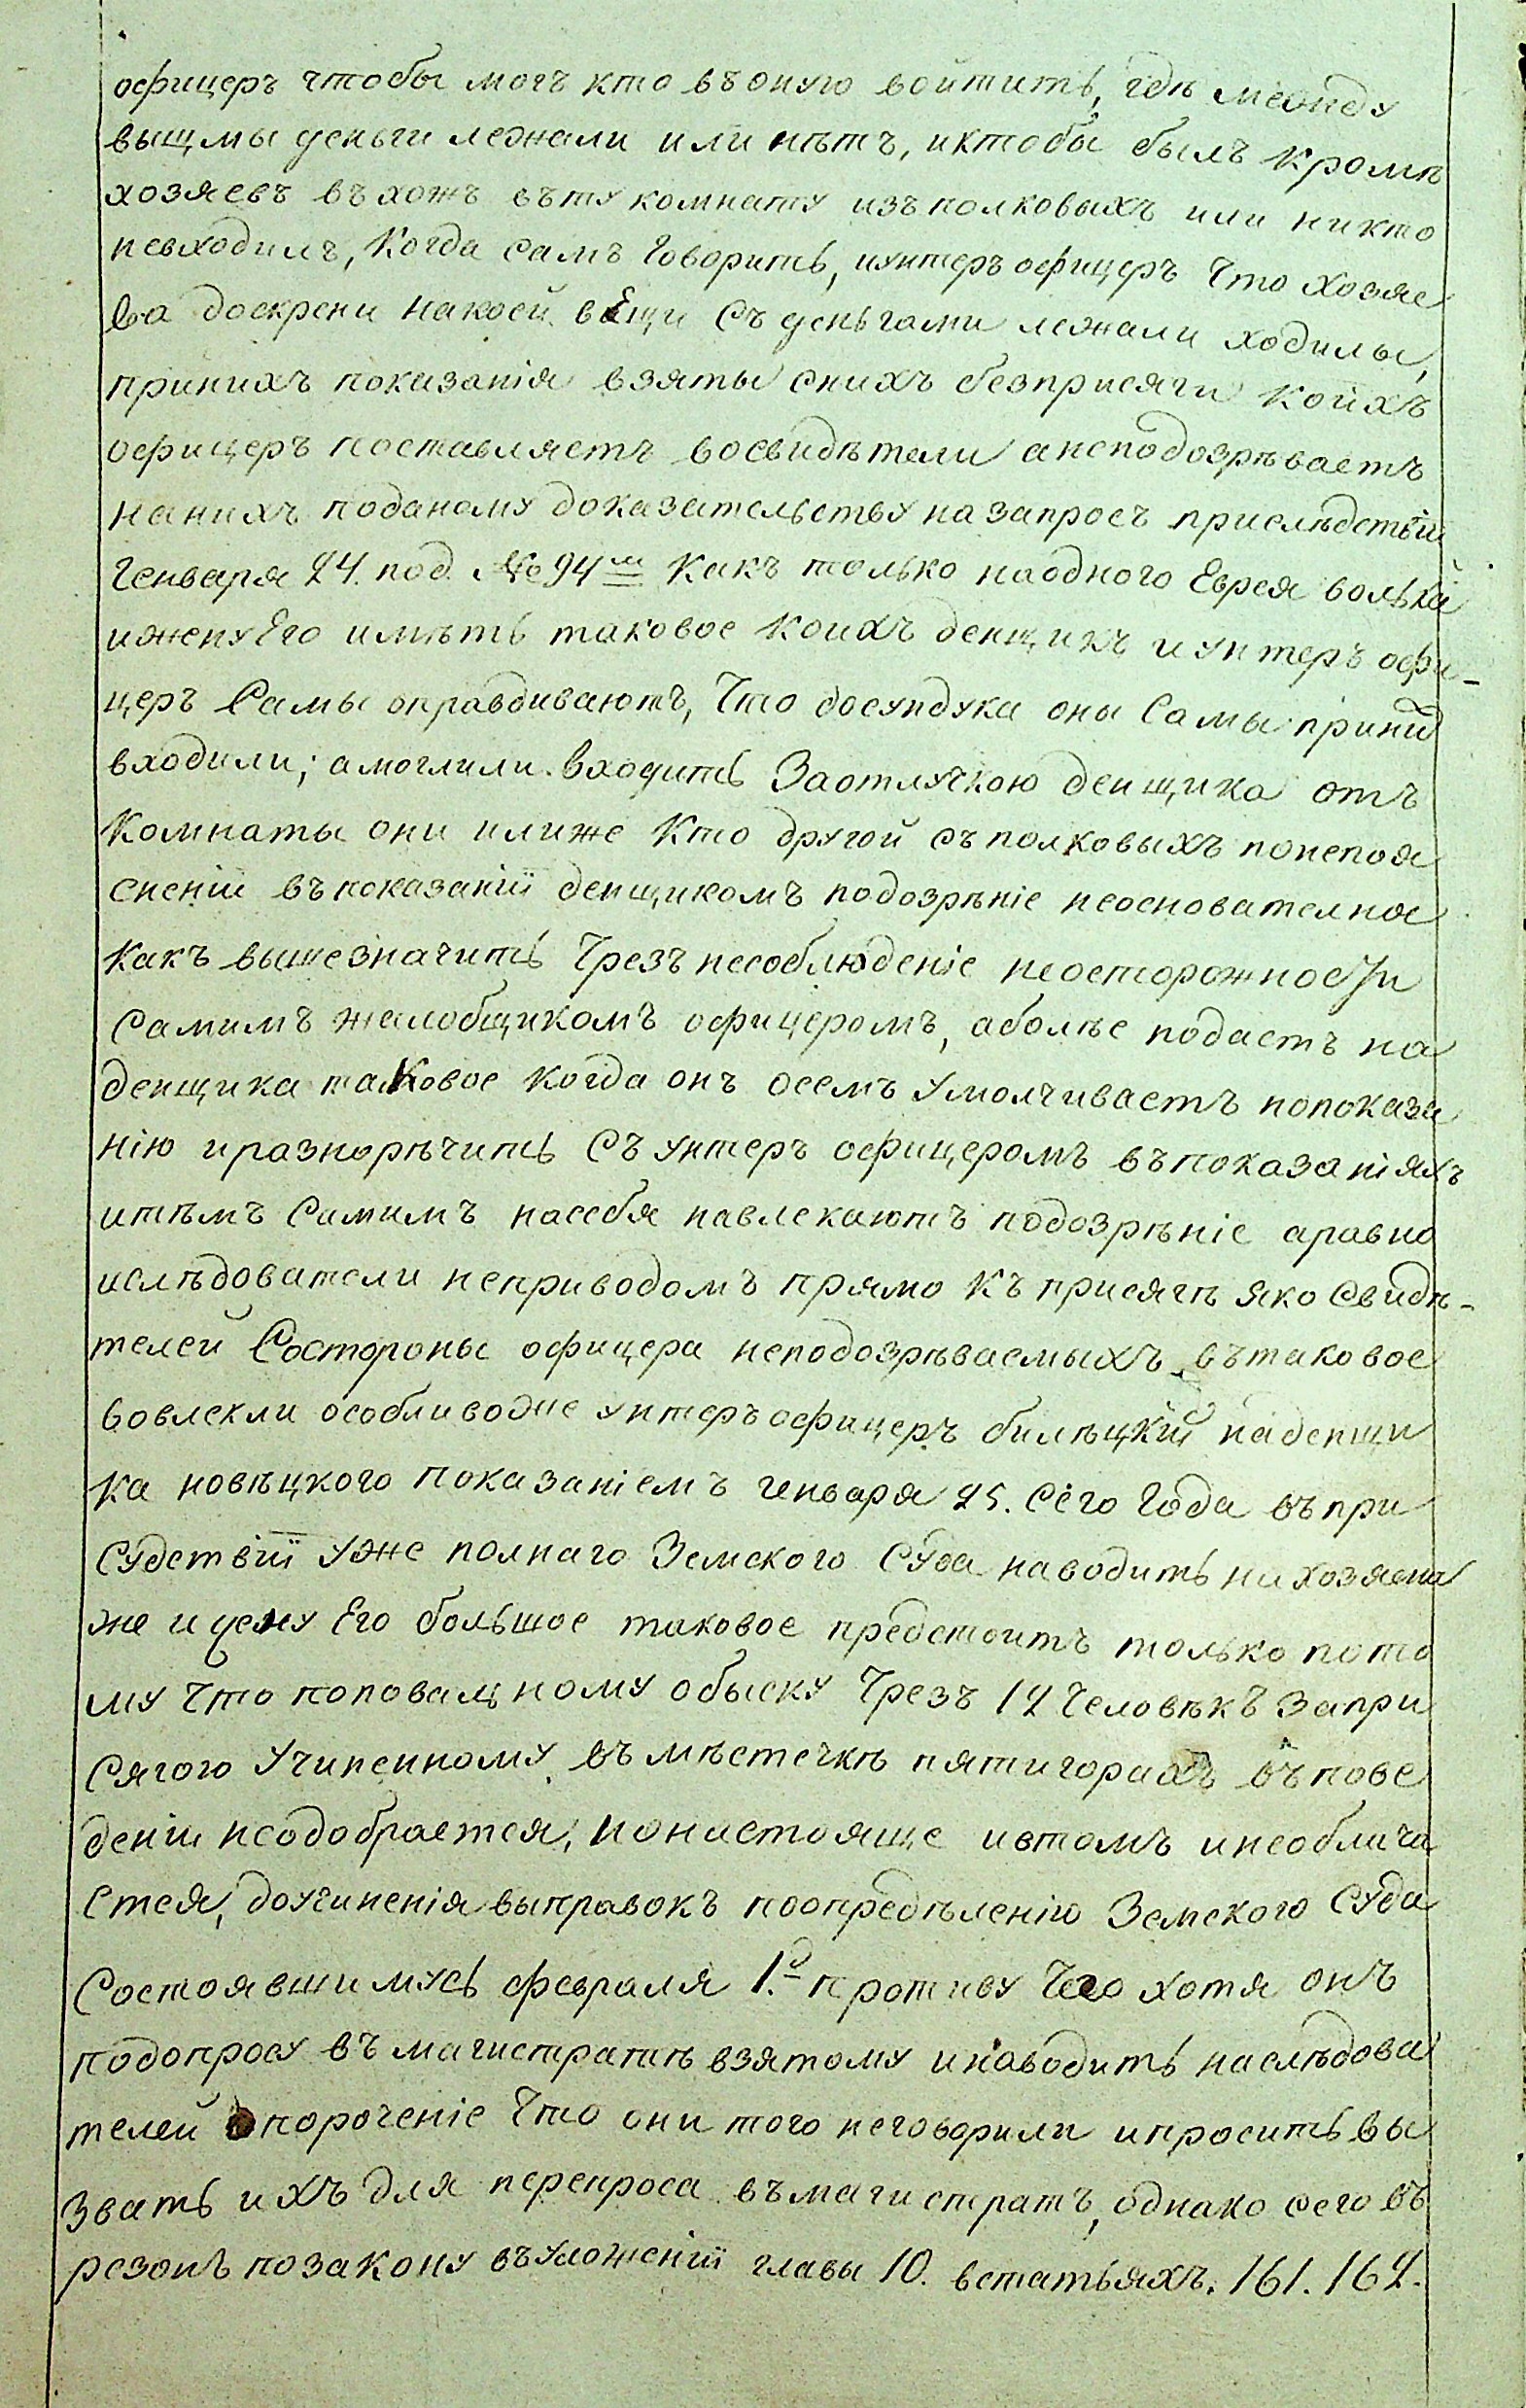 офицеръ чтобы могъ кто въ оную войтить, гдѣ между
вьщмы деньги лежали или нѣтъ, иктобы былъ кромѣ
хозяевъ въхожъ въту комнату изъ полковыхъ или никто
невходилъ, когда самъ говорить, иунтеръ офицеръ что хозяе
ва доскрени накоей вещи съ деньгами лежали ходилы,
принихъ показанія взяты снихъ безприсяги коихъ
офицеръ поставляетъ восвидѣтели анеподозрѣваетъ
нанихъ поданому доказательству назапросъ прислѣдствіи
генваря 24. под №94м какъ только наодного Еврея волька
ижену Его имѣть таковое коихъ денщикъ и унтеръ офи-
церъ самы оправдиваютъ, что досундука оны самы принид
входили; амоглили входить Заотлучкою денщика отъ
комнаты они илиже кто другой съ полковыхъ понепоя
снении въпоказаніи денщикомъ подозрѣніе неоснователное
какъ вышезначить чрезъ несоблюденіе неосторожности
самимъ жалобщикомъ офицеромъ, аболѣе подастъ на
денщика таковое когда онъ осемъ умолчиваетъ попоказа
нію иразнорѣчить съ унтеръ офицеромъ въпоказаніяхъ
итѣмъ самимъ насебя навлекаютъ подозрѣніе аравно
ислѣдователи неприводомъ прямо къ присягѣ яко свидѣ-
телей состороны офицера неподозрѣваемыхъ вътаковое
вовлекли особливодне унтеръ офицеръ билѣцкій наденщи
ка новѣцкого показаніемъ генваря 25. сего года въпри
судствіи уже полнаго Земского суда наводить нахозяена
же и дену Его большое таковое предстоитъ только пото
му что поповальному обыску чрезъ 12 человѣкъ Запри
сягою учиненному въмѣстечкѣ пятигорахъ въпове
деніи неодобрается, нонастояще ивтомъ инеоблича
ется, доучиненія выправокъ поопредѣленію Земского суда
состоявшимусь февраля 1.го противу чего хотя онъ
подопросу въ магистратѣ взятому инаводить наслѣдова
телей опороченіе что они того неговорили ипросить вы
звать ихъ для перепроса въмагистратъ, однако сего въ
резонъ позакону въУложеніи главы 10. встатьяхъ. 161. 162.